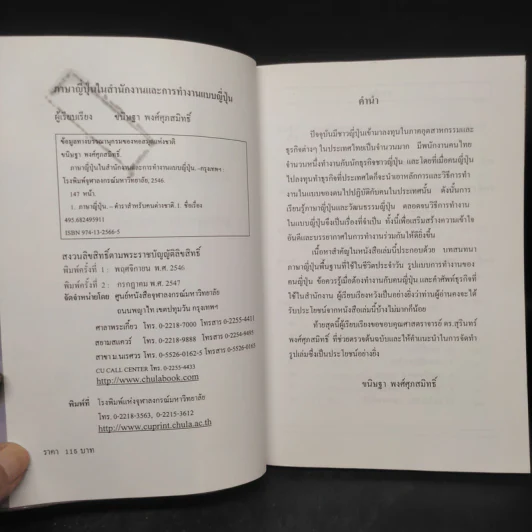 ภาษาญี่ปุ่นในสำนักงานและการทำงานแบบญี่ปุ่น
ผู้เรียบเรียง ขนิษฐา พงศ์ศุภสมิทธิ์
ข้อมูลทางบรรณานุกรมของหอสมุดแห่งชาติ
ขนิษฐา พงศ์ศุภสมิทธิ์.
ภาษาญี่ปุ่นในสำนักงานและการทำงานแบบญี่ปุ่น.--กรุงเทพฯ
โรงพิมพ์จุฬาลงกรณ์มหาวิทยาลัย, 2546.
147 หน้า.
1. ภาษาญี่ปุ่น.--ตำราสำหรับคนต่างชาติ. I. ชื่อเรื่อง
495.682495911
ISBN 974-13-2566-5
สงวนลิขสิทธิ์ตามพระราชบัญญัติลิขสิทธิ์
พิมพ์ครั้งที่ 1 : พฤศจิกายน พ.ศ. 2546
พิมพ์ครั้งที่ 2 : กรกฎาคม พ.ศ. 2547
จัดจำหน่ายโดย ศูนย์หนังสือจุฬาลงกรณ์มหาวิทยาลัย
ถนนพญาไท เขตปทุมวัน กรุงเทพฯ
ศาลาพระเกี้ยว โทร. 0-2218-7000 โทรสาร 0-2255-4441
สยามสแควร์ โทร. 0-2218-9888 โทรสาร 0-2254-9495
สาขา ม.นเรศวร โทร. 0-5526-0162-5 โทรสาร 0-5526-0165
CU CALL CENTER โทร. 0-2255-4433
http://www.chulabook.com
พิมพ์ที่ โรงพิมพ์แห่งจุฬาลงกรณ์มหาวิทยาลัย
โทร. 0-2218-3563, 0-2215-3612
http://www.cuprint.chula.ac.th
ราคา 115 บาท
คำนำ
ปัจจุบันมีชาวญี่ปุ่นเข้ามาลงทุนในภาคอุตสาหกรรมและ
ธุรกิจต่างๆ ในประเทศไทยเป็นจำนวนมาก มีพนักงานคนไทย
จำนวนหนึ่งทำงานกับนักธุรกิจชาวญี่ปุ่น และโดยที่เมื่อคนญี่ปุ่น
ไปลงทุนทำธุรกิจที่ประเทศใดก็จะนำเอาหลักการและวิธีการทำ
งานในแบบของตนไปปฏิบัติกับคนในประเทศนั้น ดังนั้นการ
เรียนรู้ภาษาญี่ปุ่นและวัฒนธรรมญี่ปุ่น ตลอดจนวิธีการทำงาน
ในแบบญี่ปุ่นจึงเป็นเรื่องที่จำเป็น ทั้งนี้เพื่อเสริมสร้างความเข้าใจ
อันดีและบรรยากาศในการทำงานร่วมกันให้ดียิ่งขึ้น
เนื้อหาสำคัญในหนังสือเล่มนี้ประกอบด้วย บทสนทนา
ภาษาญี่ปุ่นพื้นฐานที่ใช้ในชีวิตประจำวัน รูปแบบการทำงานของ
คนญี่ปุ่น ข้อควรรู้เมื่อต้องทำงานกับคนญี่ปุ่น และคำศัพท์ธุรกิจที่
ใช้ในสำนักงาน ผู้เรียบเรียงหวังเป็นอย่างยิ่งว่าท่านผู้อ่านคงจะได้
รับประโยชน์จากหนังสือเล่มนี้บ้างไม่มากก็น้อย
ท้ายสุดนี้ผู้เรียบเรียงขอขอบคุณศาสตราจารย์ ดร.สุรินทร์
พงศ์ศุภสมิทธิ์ ที่ช่วยตรวจต้นฉบับและให้คำแนะนำในการจัดทำ
รูปเล่มซึ่งเป็นประโยชน์อย่างยิ่ง
ขนิษฐา พงศ์ศุภสมิทธิ์